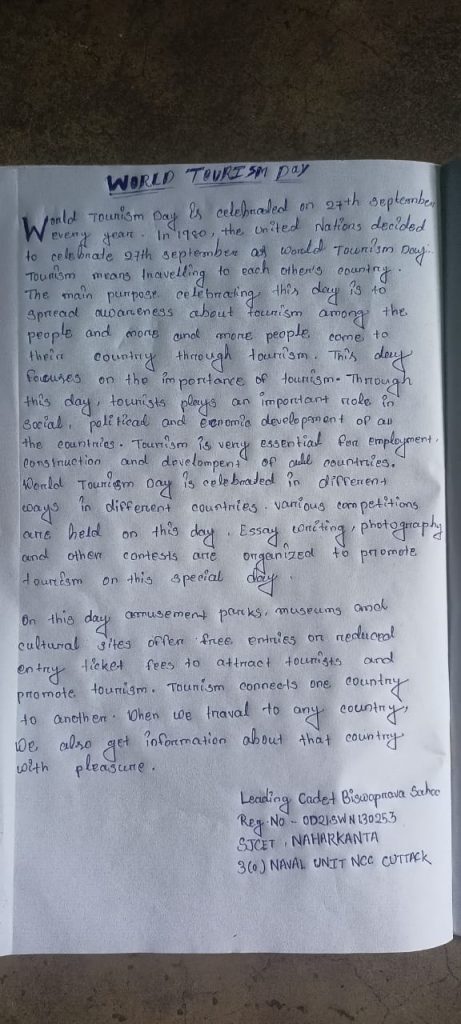 WORLD TOURISM DAY
World Tourism Day is celebrated on 27th September
every year. In 1980, the united Nations decided
to celebrate 27th september as World Tourism Day.
Tourism means travelling to each other's country.
The main purpose celebrating this day is to
spread awareness about tourism among the
people and more and more people come to
their country through tourism. This day
focuses on the importance of tourism. Through
this day, tourists plays an important role in
social, political and economic development of all
the countries. Tourism is very essential for employment,
construction and develompent of all countries.
World Tourism Day is celebrated in different
ways in different countries. various competitions
are held on this day. Essay writing, photography
and other contests are organized to promote
tourism on this special day.
On this day amusement parks, museums and
cultural sites offer free entries or reduced
entry ticket fees to attract tourists and
promote tourism. Tourism connects one country
to another. When we traval to any country,
We also get information about that country
with pleasure.
Leading Cadet Biswoprava Sahoo
Reg. No - OD21SWN130253
SJCET, NAHARKANTA
3(O) NAVAL UNIT NCC CUTTACK